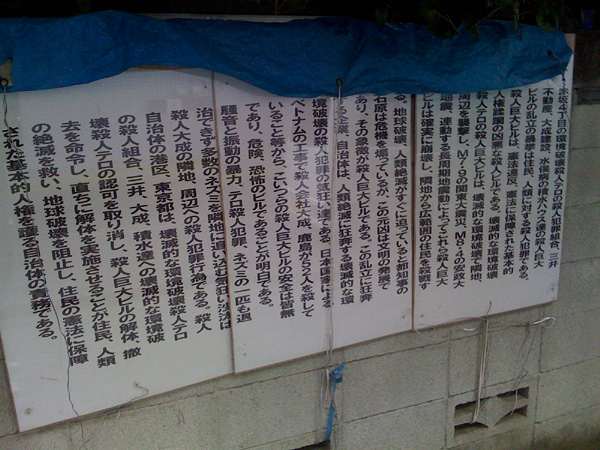 赤坂4丁目の環境破壊殺人テロの殺人犯罪組合、三井
不動産、大成建設、水俣病の積水ハウス達の殺人巨大
ビルの乱立の愚挙は住民、人類に対する殺人犯罪である。
殺人巨大ビルは、憲法違反、憲法に保障された基本的
人権認識の凶悪な殺人ビルである。壊滅的な環境破壊
殺人テロの殺人巨大ビルは、壊滅的な環境破壊で隣地、
周辺を襲撃し、M7.9の関東大震災、M8.4の安政大
地震、連動する長周期地震動によってこれら殺人巨大
ビルは確実に崩壊し、隣地から広範囲の住民を殺戮す
る。地球破壊、人類絶滅がすぐに迫っていると都知事の
石原は危機を煽っているが、この元凶は文明の発展で
あり、その象徴が殺人巨大ビルである。この乱立に狂奔
する企業、自治体は、人類絶滅に狂奔する壊滅的な環
境破壊の殺人犯罪の気狂い達である。日本国費による
ベトナムの工事で殺人会社大成、鹿島が55人を殺して
いること等から、こいつらの殺人巨大ビルの安全は皆無
であり、危険、恐怖のビルであることが明白である。
騒音と振動の暴力、テロ殺人犯罪、ネズミの一匹も退
治できず多数のネズミを隣地に追い込む気狂い沙汰は
殺人大成の隣地、周辺への殺人犯罪行為である。殺人
自治体の港区、東京都は、壊滅的な環境破壊殺人テロ
の殺人組合、三井、大成、積水達への壊滅的な環境破
壊殺人テロの認可を取り消し、殺人巨大ビルの解体、撤
去を命令し、直ちに解体を実施させることが住民、人類
の絶滅を救い、地球破壊を阻止し、住民の憲法に保障
された基本的人権を護る自治体の責務である。